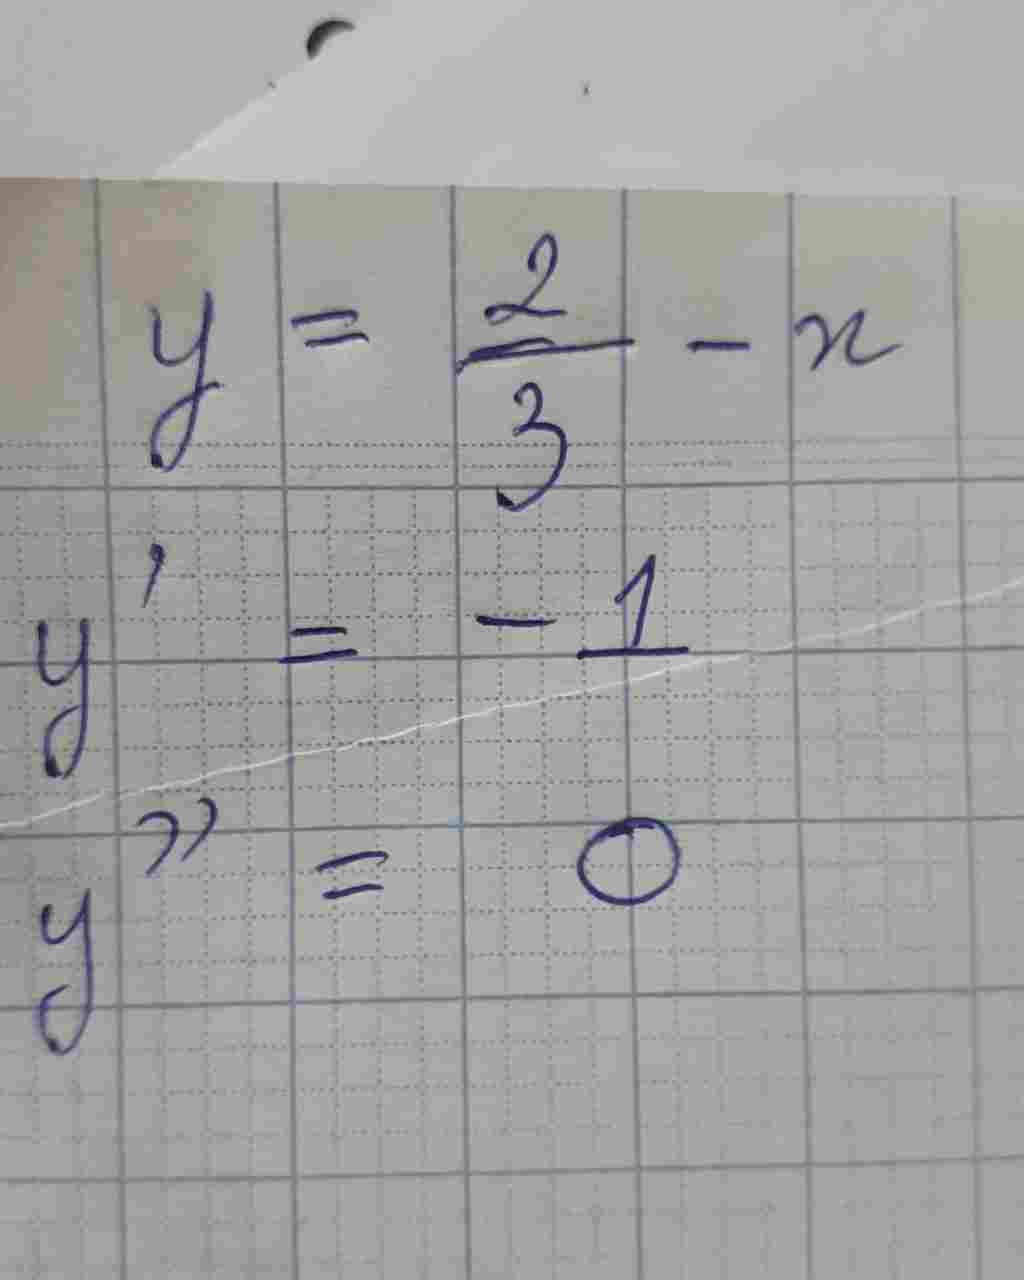 y = 2/3 - x
y' = -1
y'' = 0